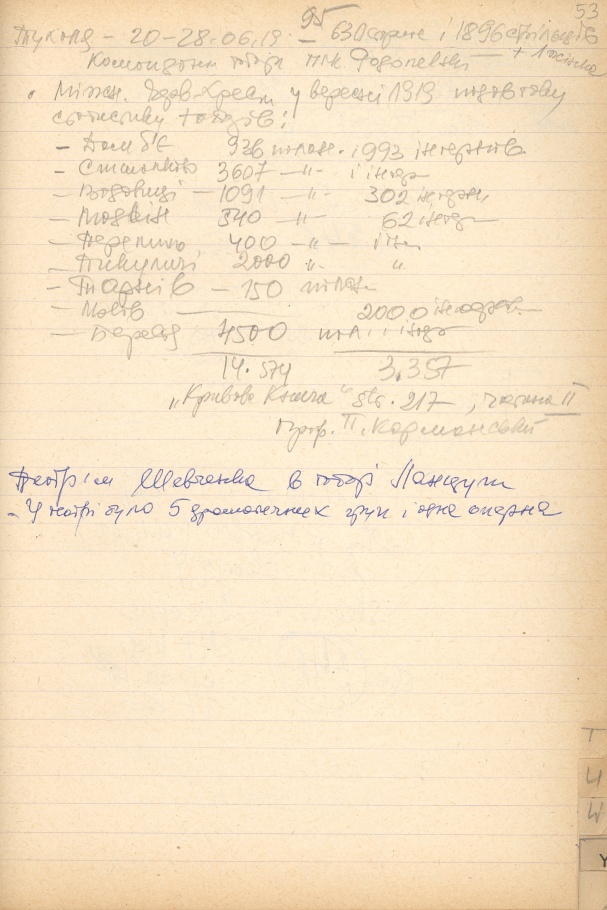 53
Тухоля – 20–28.06.19. – 95 старшин і 1896 стрільців
+ 1 жінка
Комендант табору пплк
• Міжн. Черв. Хрест у вересні 1919 подав таку
статистику таборів:
– Домб'є 936 полон. 1993 інтернов.
– Стшалково 3607 –"– і інтер
– Вадовиці – 1091 –"– 302 інтерн.
– Модлін 340 –"– 62 інтер
– Перемишль 400 –"– інт.
– Пикуличі 2000 –"– "
– Тарнів – 150 полон.
– Львів 2000 інтернов.
– Берестя 4500 пол. і інтер
14.574 3.357
„Кривава Книга" str. 217, частина II
проф. П. Карманський
Театр ім Шевченка в таборі Ланцут
– У театрі було 5 драматичних груп і одна оперна
Т
Ч
Ш
Y